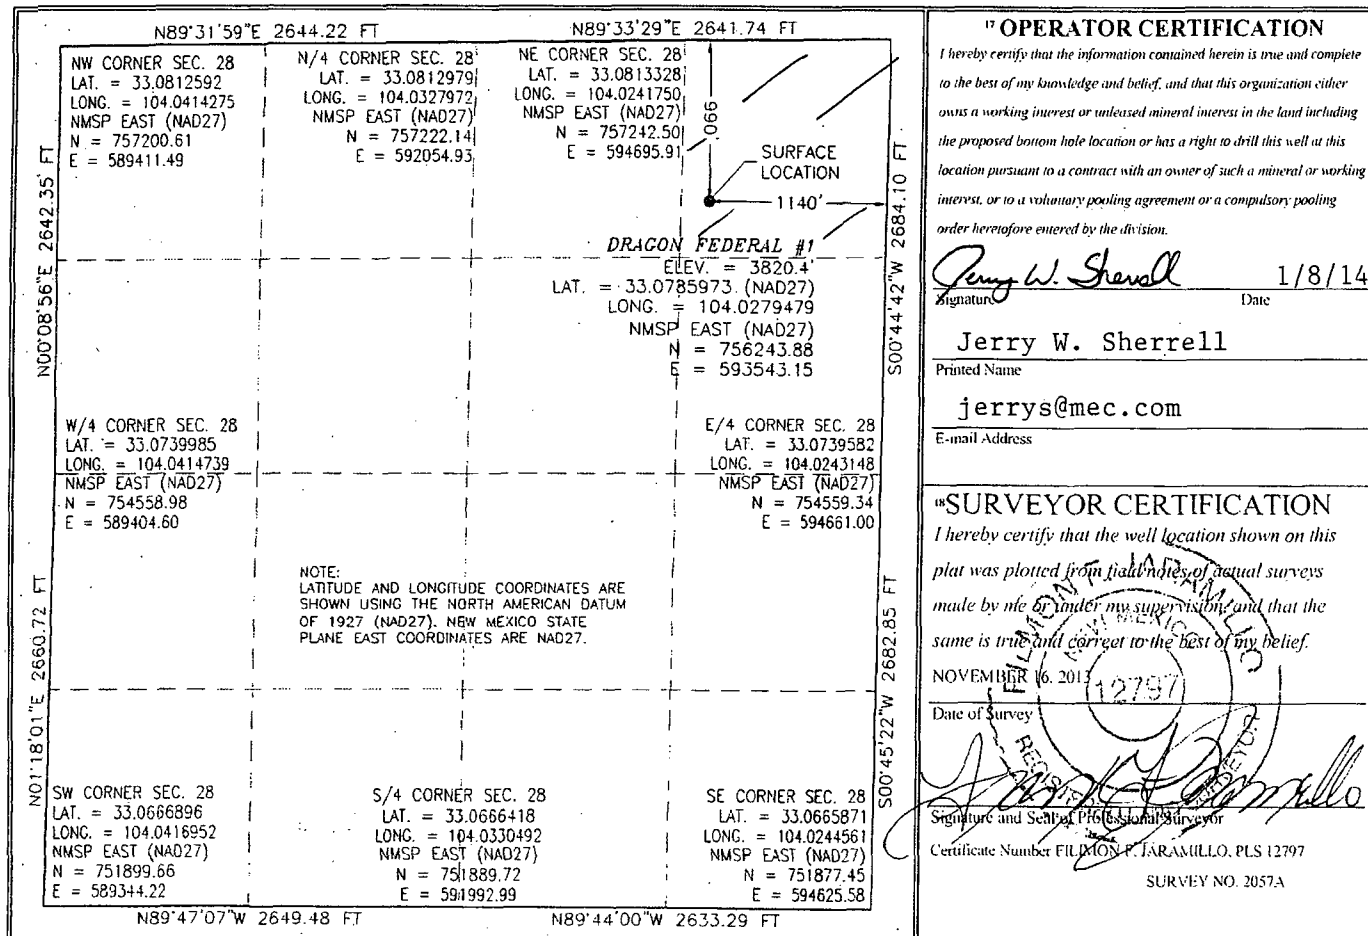 N89°31'59"E 2644.22 FT
N89°33'29"E 2641.74 FT
NW CORNER SEC. 28
LAT. = 33.0812592
LONG. = 104.0414275
NMSP EAST (NAD27)
N = 757200.61
E = 589411.49
N/4 CORNER SEC. 28
LAT. = 33.0812979
LONG. = 104.0327972
NMSP EAST (NAD27)
N = 757222.14
E = 592054.93
NE CORNER SEC. 28
LAT. = 33.0813328
LONG. = 104.0241750
NMSP EAST (NAD27)
N = 757242.50
E = 594695.91
990'
SURFACE
LOCATION
1140'
N00°08'56"E 2642.35' FT
S00°44'42"W 2684.10 FT
DRAGON FEDERAL #1
ELEV. = 3820.4'
LAT. = 33.0785973 (NAD27)
LONG. = 104.0279479
NMSP EAST (NAD27)
N = 756243.88
E = 593543.15
W/4 CORNER SEC. 28
LAT. = 33.0739985
LONG. = 104.0414739
NMSP EAST (NAD27)
N = 754558.98
E = 589404.60
E/4 CORNER SEC. 28
LAT. = 33.0739582
LONG. = 104.0243148
NMSP EAST (NAD27)
N = 754559.34
E = 594661.00
NOTE:
LATITUDE AND LONGITUDE COORDINATES ARE
SHOWN USING THE NORTH AMERICAN DATUM
OF 1927 (NAD27). NEW MEXICO STATE
PLANE EAST COORDINATES ARE NAD27.
N01°18'01"E 2660.72 FT
S00°45'22"W 2682.85 FT
SW CORNER SEC. 28
LAT. = 33.0666896
LONG. = 104.0416952
NMSP EAST (NAD27)
N = 751899.66
E = 589344.22
S/4 CORNER SEC. 28
LAT. = 33.0666418
LONG. = 104.0330492
NMSP EAST (NAD27)
N = 751889.72
E = 591992.99
SE CORNER SEC. 28
LAT. = 33.0665871
LONG. = 104.0244561
NMSP EAST (NAD27)
N = 751877.45
E = 594625.58
N89°47'07"W 2649.48 FT
N89°44'00"W 2633.29 FT
17 OPERATOR CERTIFICATION
I hereby certify that the information contained herein is true and complete
to the best of my knowledge and belief, and that this organization either
owns a working interest or unleased mineral interest in the land including
the proposed bottom hole location or has a right to drill this well at this
location pursuant to a contract with an owner of such a mineral or working
interest, or to a voluntary pooling agreement or a compulsory pooling
order heretofore entered by the division.
Jerry W. Sherrell 1/8/14
Signature Date
Jerry W. Sherrell
Printed Name
jerrys@mec.com
E-mail Address
18 SURVEYOR CERTIFICATION
I hereby certify that the well location shown on this
plat was plotted from field notes of actual surveys
made by me or under my supervision, and that the
same is true and correct to the best of my belief.
NOVEMBER 16, 2013
Date of Survey
FILIMON F. JARAMILLO
NEW MEXICO
12797
Signature and Seal of Professional Surveyor
Certificate Number FILIMON F. JARAMILLO, PLS 12797
SURVEY NO. 2057A